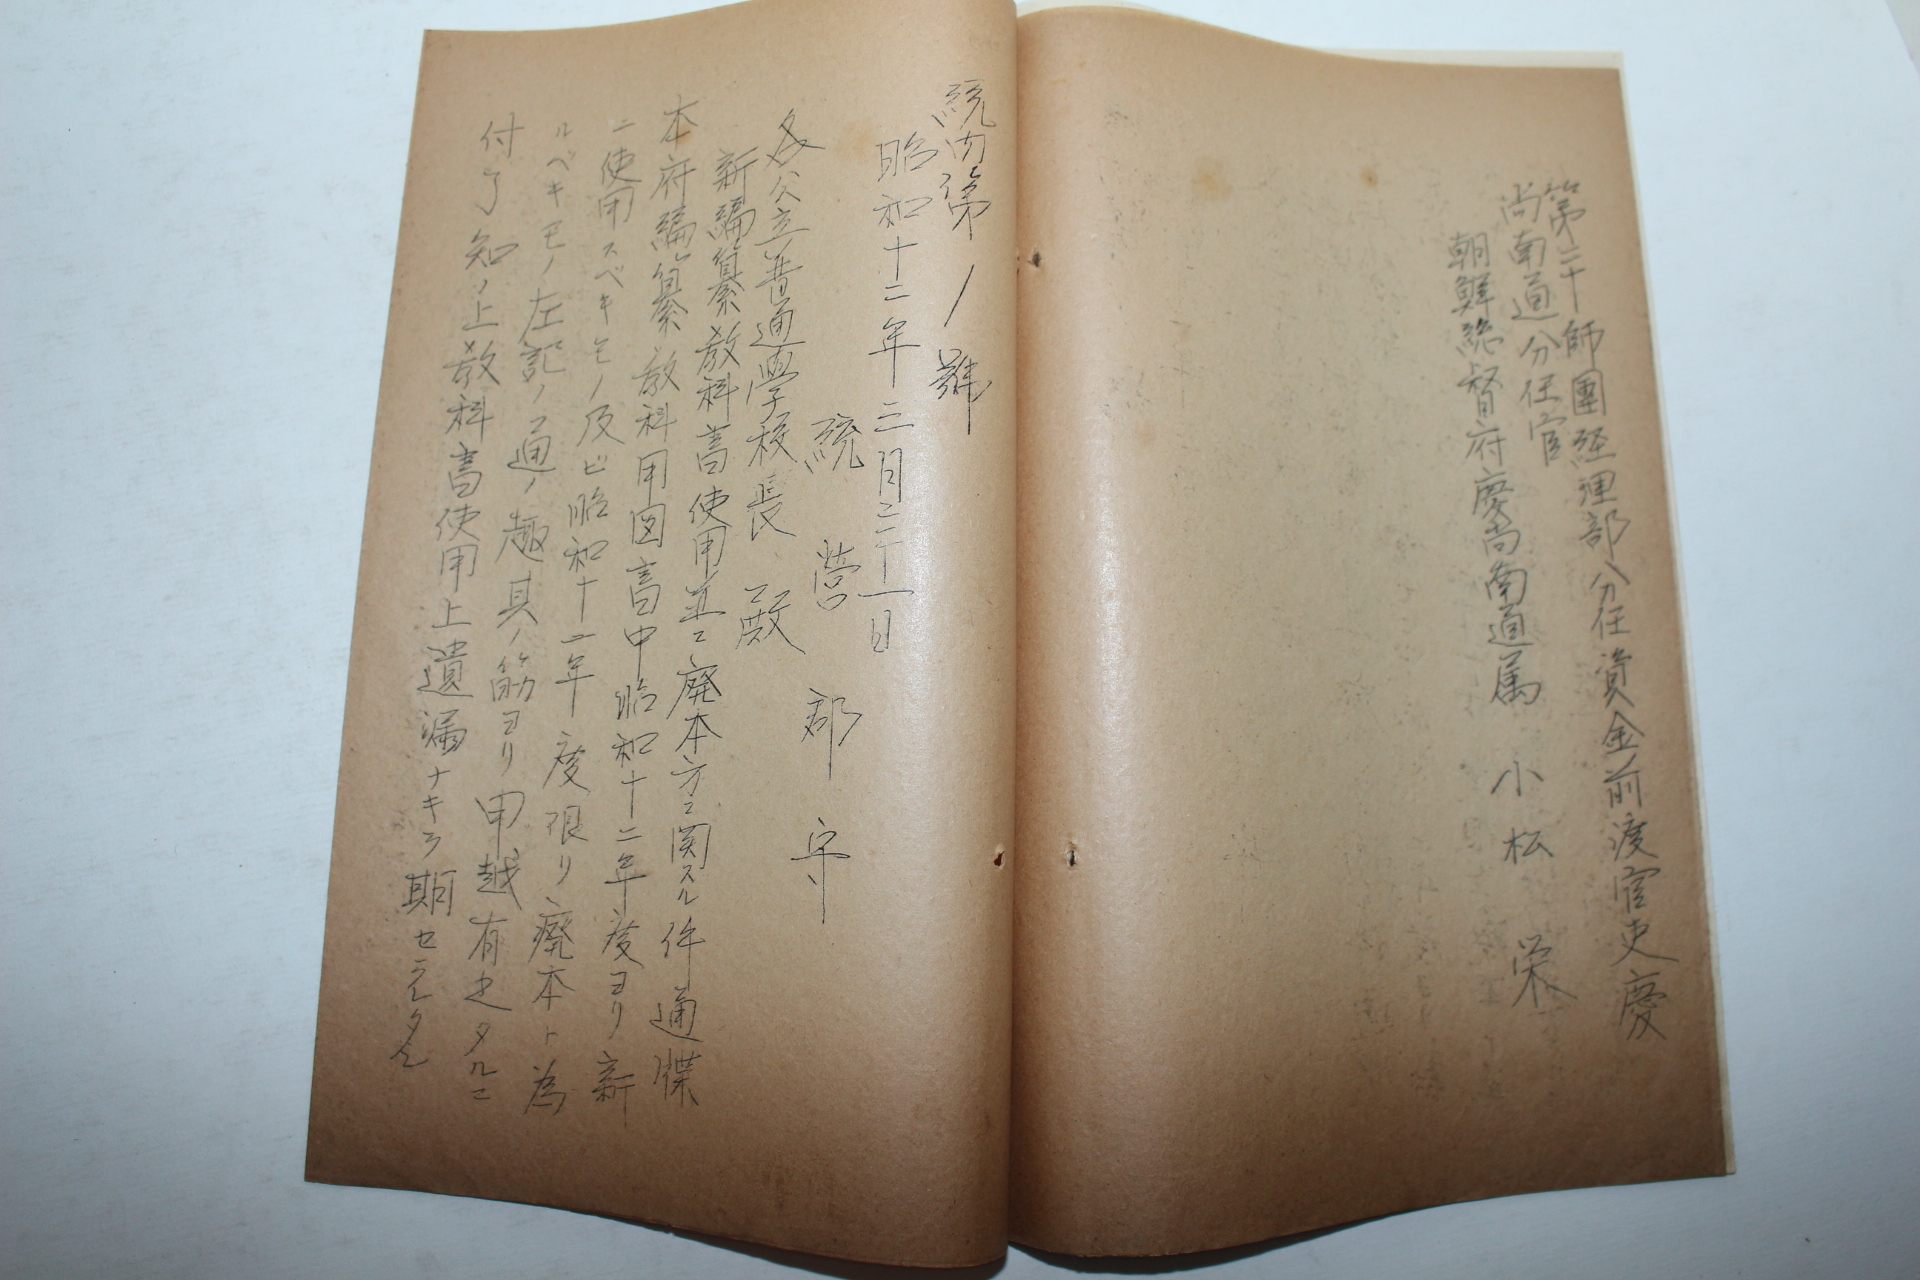 第二十師團経理部分任資金前渡官吏慶
尚南道分任官
朝鮮総督府慶尚南道属 小松 栄
統内第ノ號
昭和十二年三月三十一日
統營郡守
各公立普通學校長殿
新編纂教科書使用並ニ廃本方ニ関スル件通牒
本府編纂教科用図書中昭和十二年度ヨリ新
ニ使用スベキモノ及ビ昭和十二年度限リ廃本ト為
ルベキモノ左記ノ通ノ趣其ノ筋ヨリ申越有之タルニ
付了知ノ上教科書使用上遺漏ナキヲ期セラレタシ